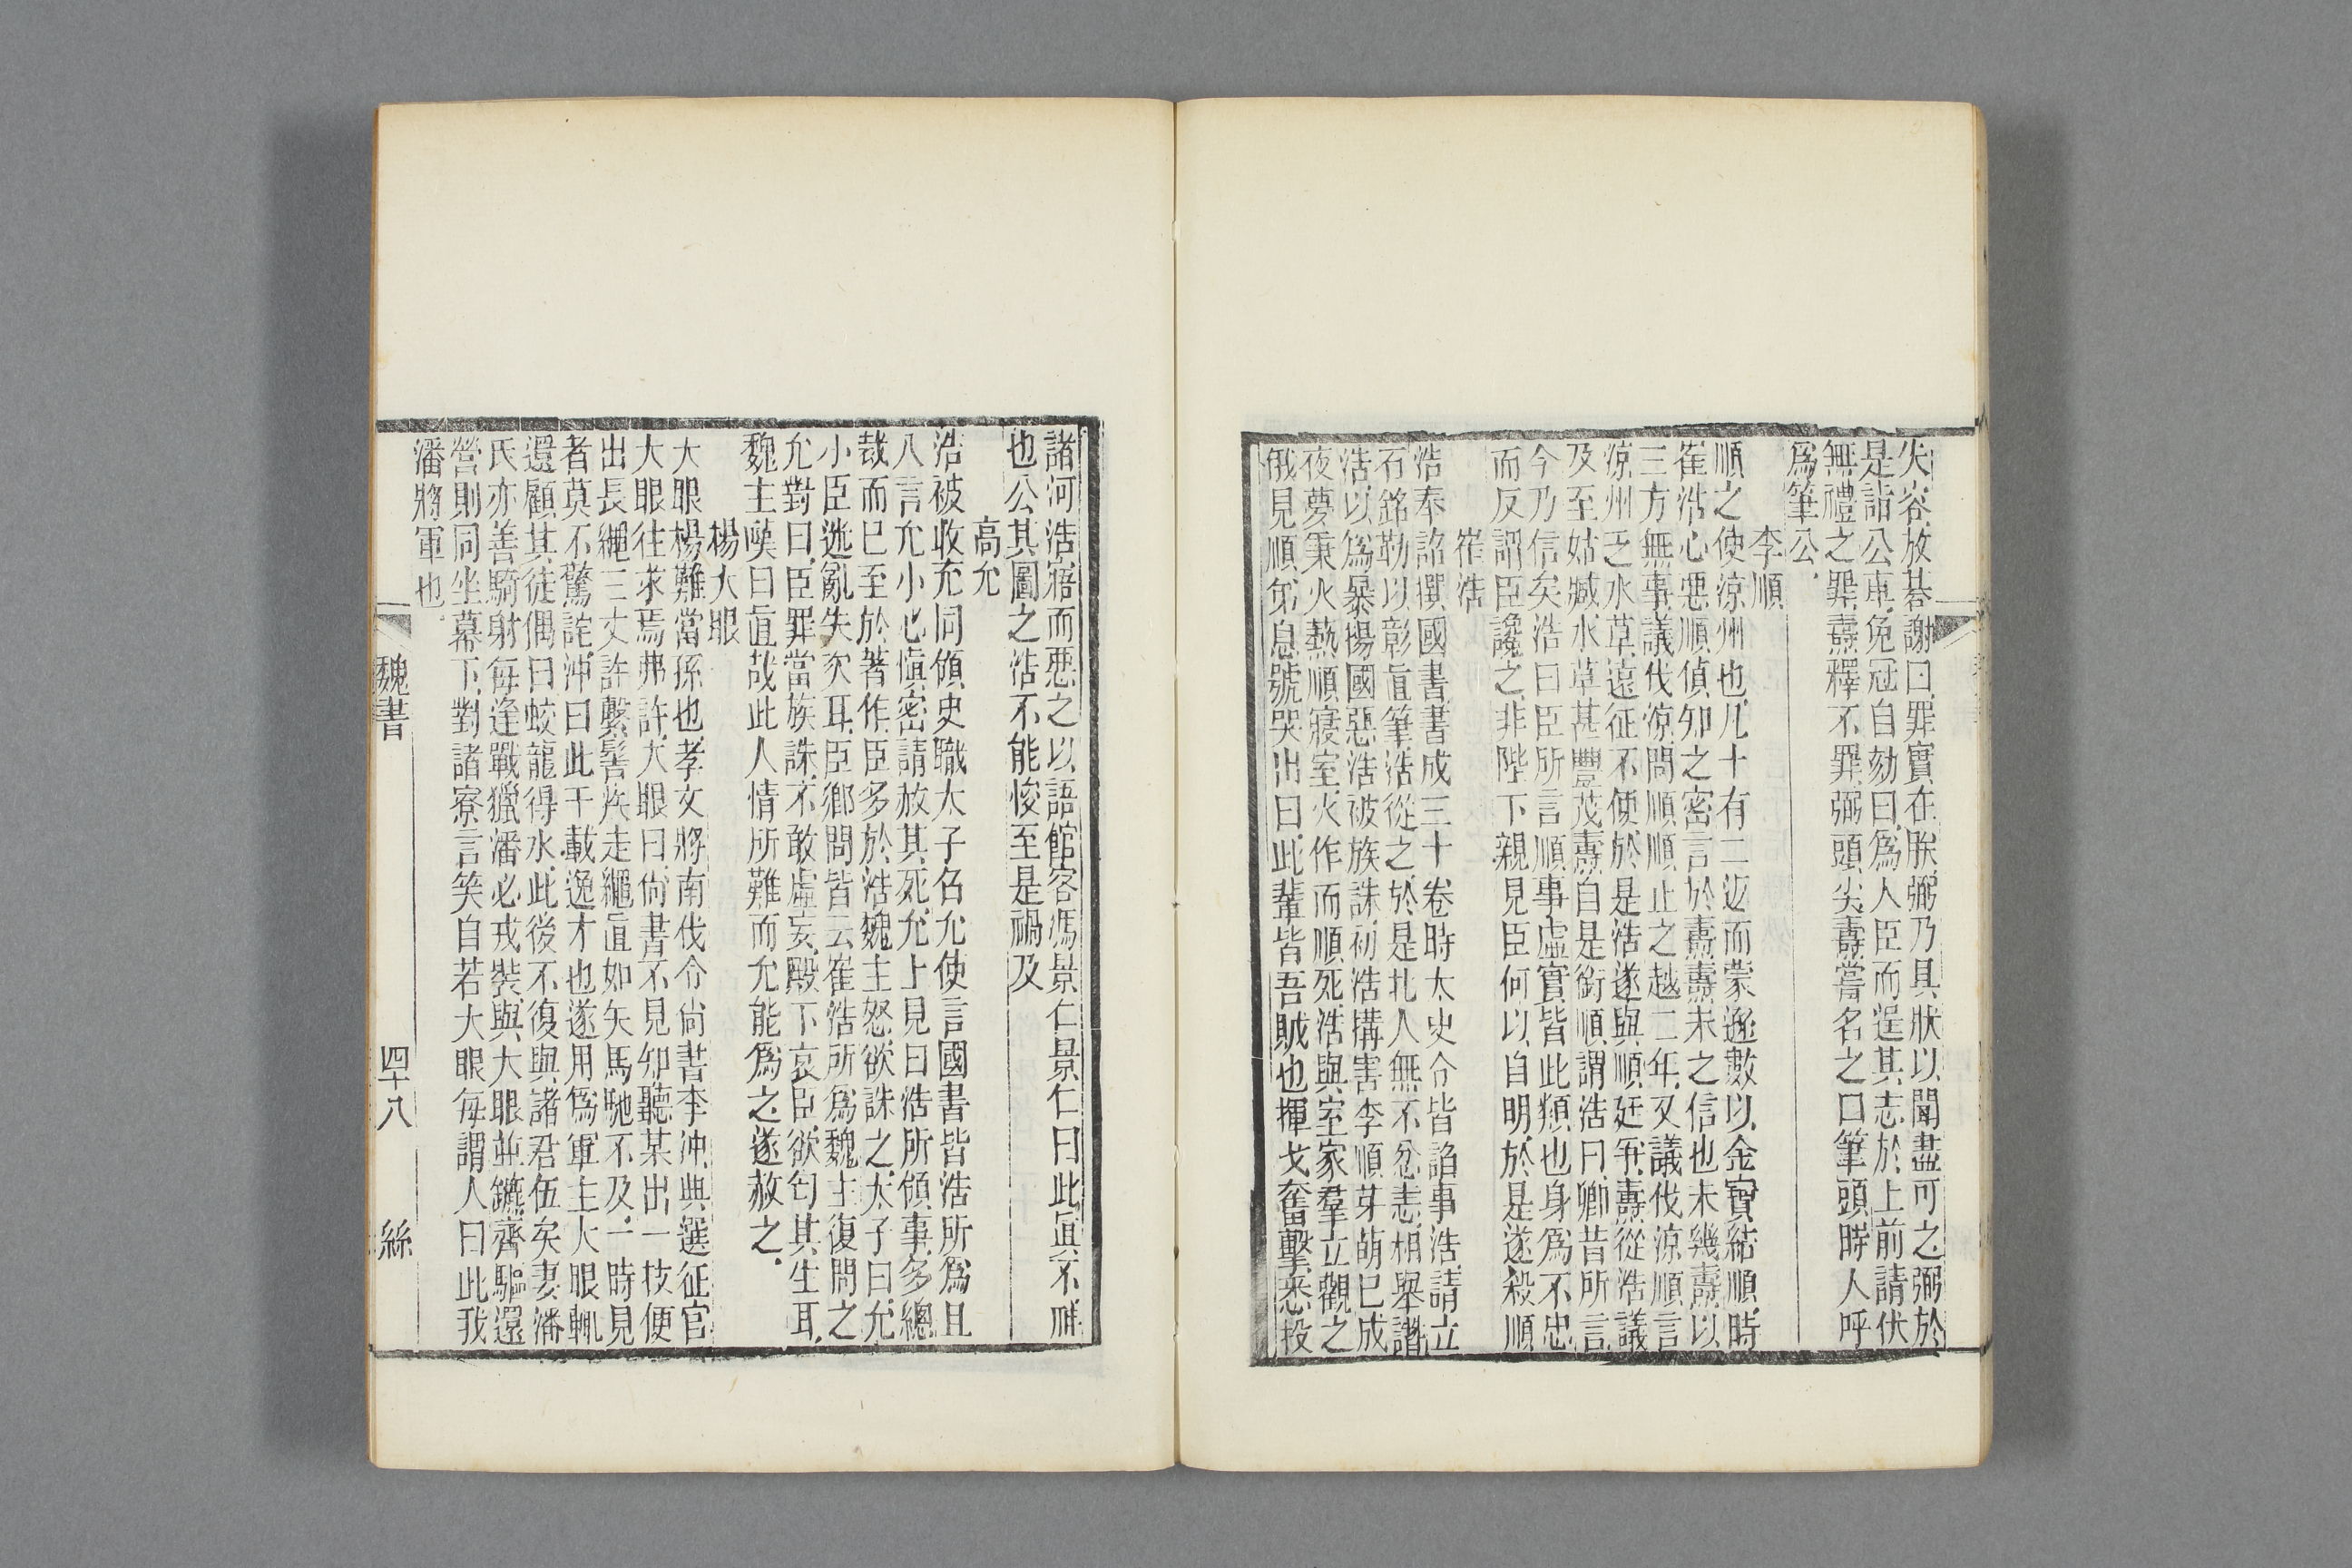 失容放棊謝曰罪實在朕弼乃具狀以聞盡可之弼於
是詣公車免冠自劾曰爲人臣而逞其志於上前請伏
無禮之罪燾釋不罪弼頭尖燾嘗名之曰筆頭時人呼
爲筆公
李順
順之使涼州也凡十有二返而蒙遜數以金寶結順時
崔浩心惡順偵知之密言於燾燾未之信也未幾燾以
三方無事議伐涼問順順止之越二年又議伐涼順言
涼州乏水草遠征不便於是浩遂與順廷爭燾從浩議
及至姑臧水草甚豐茂燾自是銜順謂浩曰卿昔所言
今乃信矣浩曰臣所言順事虛實皆此類也身爲不忠
而反謂臣讒之非陛下親見臣何以自明於是遂殺順
崔浩
浩奉詔撰國書書成三十卷時太史令皆諂事浩請立
石銘勒以彰直筆浩從之於是北人無不忿恚相舉譖
浩以爲暴揚國惡浩被族誅初浩搆害李順芽萌已成
夜夢秉火爇順寢室火作而順死浩與室家羣立觀之
俄見順弟息號哭出曰此輩皆吾賊也揮戈奮擊悉投
諸河浩寤而惡之以語館客馮景仁景仁曰此眞不祥
也公其圖之浩不能悛至是禍及
高允
浩被收允同領史職太子召允使言國書皆浩所爲且
八言允小心愼密請赦其死允上見曰浩所領事多總
哉而已至於著作臣多於浩魏主怒欲誅之太子曰允
小臣迷亂失次耳臣鄉問皆云崔浩所爲魏主復問之
允對曰臣罪當族誅不敢虛妄殿下哀臣欲匄其生耳
魏主嘆曰直哉此人情所難而允能爲之遂赦之
楊大眼
大眼楊難當孫也孝文將南伐令尙書李沖典選征官
大眼往求焉弗許大眼曰尙書不見知聽某出一技便
出長繩三丈許繫髻疾走繩直如矢馬馳不及一時見
者莫不驚詫沖曰此千載逸才也遂用爲軍主大眼輒
還顧其徒偶曰蛟龍得水此後不復與諸君伍矣妻潘
氏亦善騎射每逢戰獵潘必戎裝與大眼並鑣齊驅還
營則同坐幕下對諸寮言笑自若大眼每謂人曰此我
潘將軍也
魏書 四十八 絲